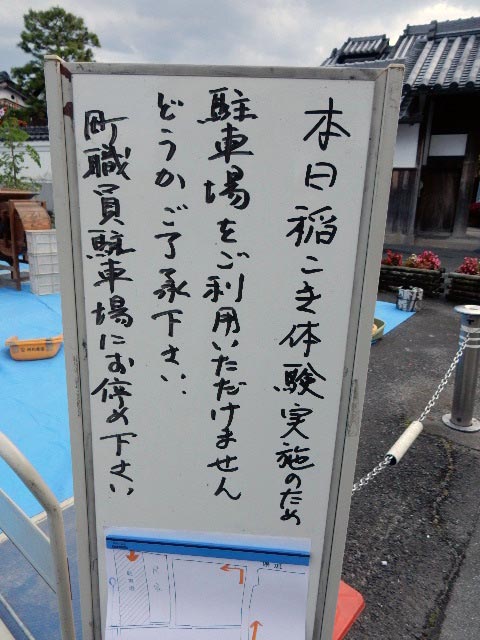 本日稲こき体験実施のため
駐車場をご利用いただけません
どうかご了承下さい.
町職員駐車場にお停め下さい